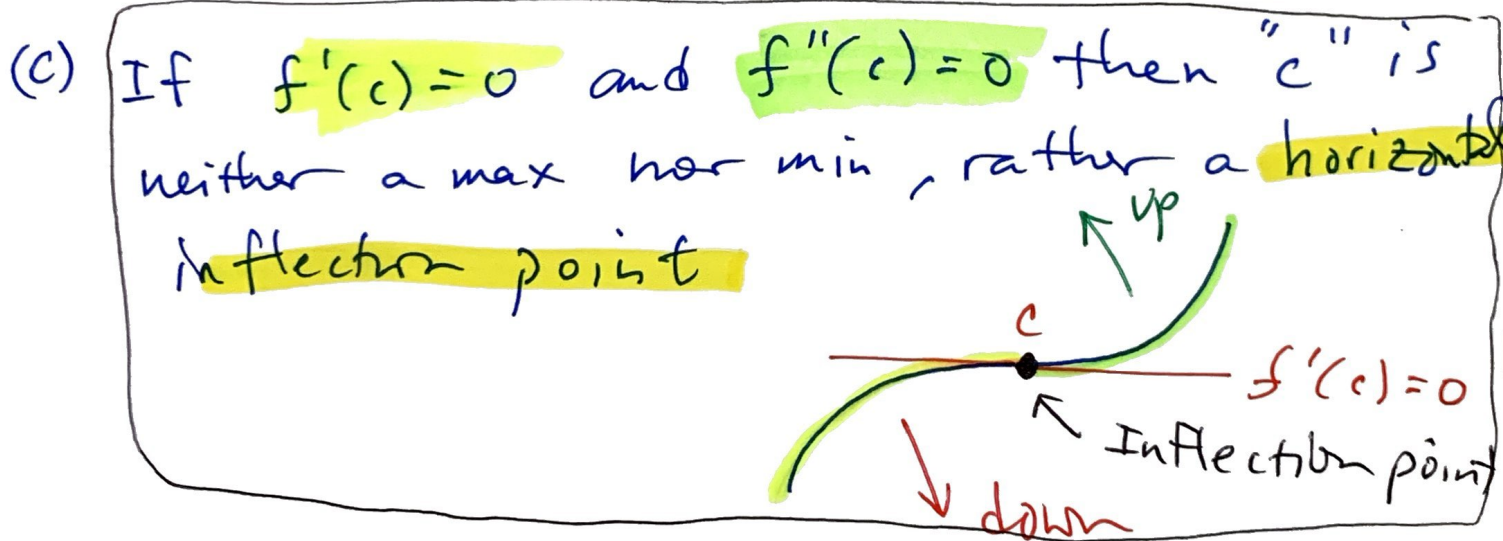 (c) If f'(c) = 0 and f"(c) = 0 then "c" is
neither a max nor min, rather a horizontal
inflection point
up
c
f'(c) = 0
Inflection point
down